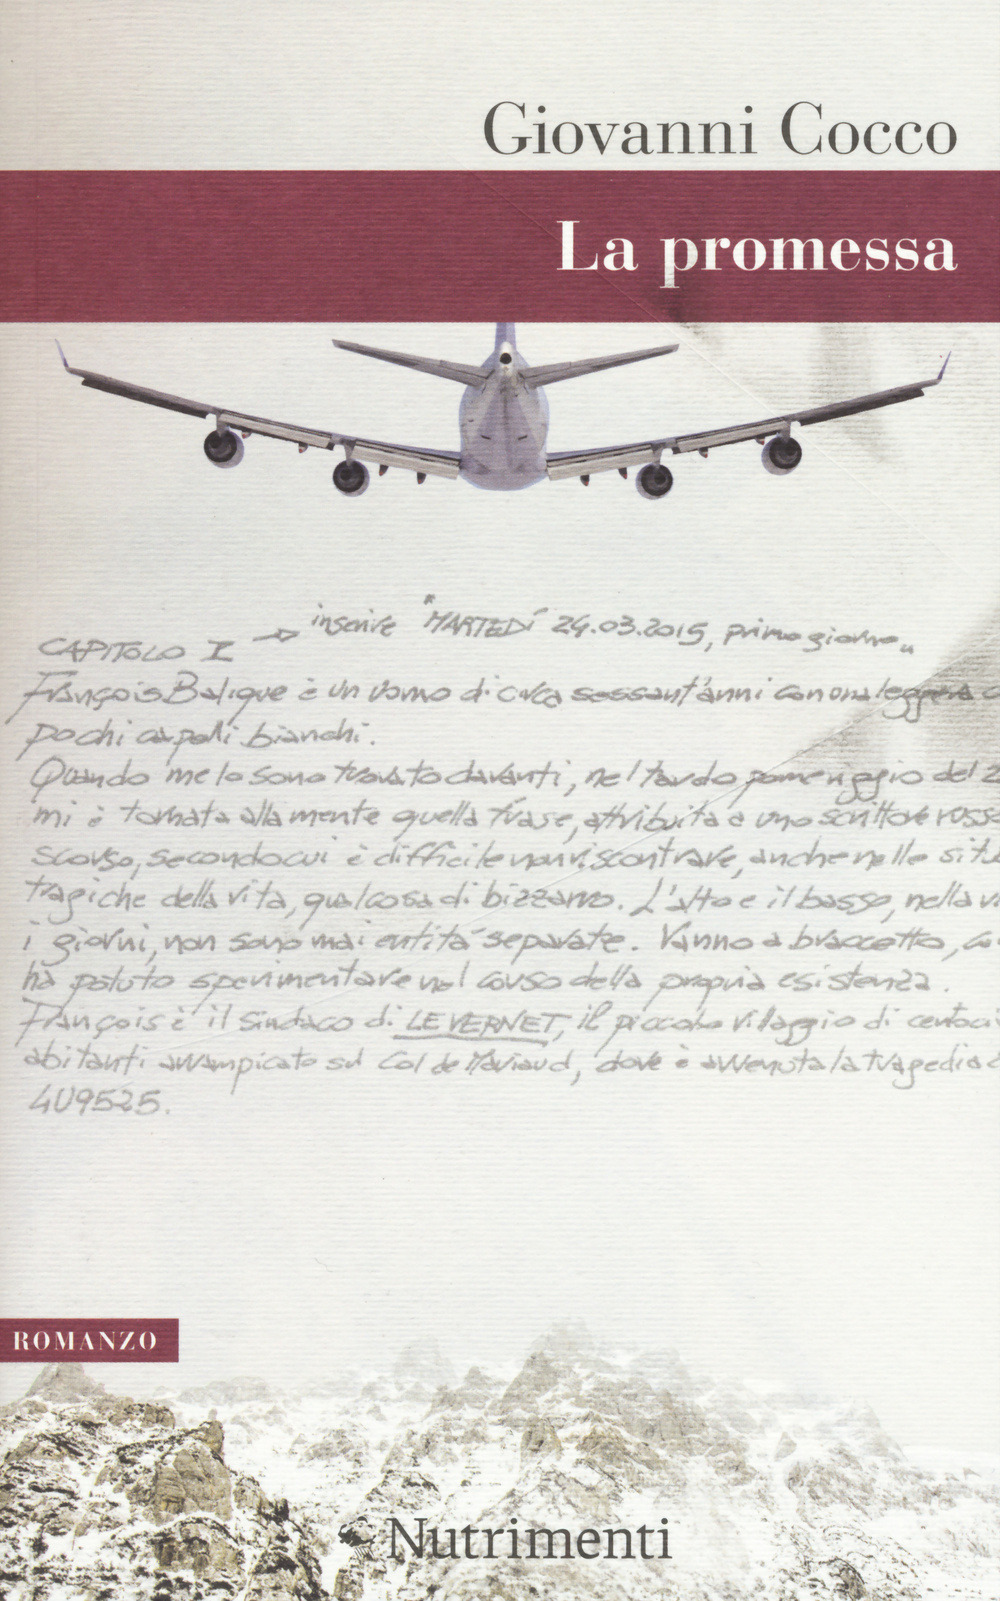 Giovanni Cocco
La promessa
CAPITOLO I → inserire "MARTEDÍ 24.03.2015, primo giorno"
François Balique è un uomo di circa sessant'anni con una leggera
pochi capelli bianchi.
Quando me lo sono trovato davanti, nel tardo pomeriggio del 2
mi è tornata alla mente quella frase, attribuita a uno scrittore russo
scorso, secondo cui è difficile non riscontrare, anche nelle situ
tragiche della vita, qualcosa di bizzarro. L'alto e il basso, nella vi
i giorni, non sono mai entità separate. Vanno a braccetto, co
ha potuto sperimentare nel corso della propria esistenza.
François è il sindaco di LE VERNET, il piccolo villaggio di centoci
abitanti arrampicato sul Col de Mariaud, dove è avvenuta la tragedia d
4U9525.
ROMANZO
Nutrimenti